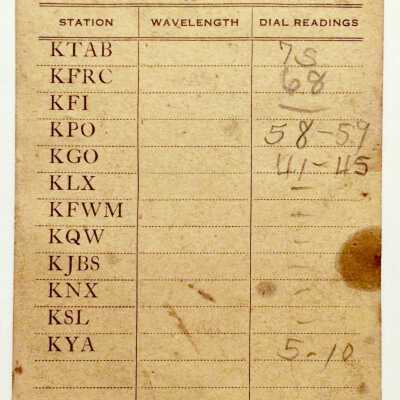 STATION WAVELENGTH DIAL READINGS
KTAB 75
KFRC 68
KFI —
KPO 58-59
KGO 41-45
KLX —
KFWM –
KQW –
KJBS –
KNX –
KSL –
KYA 5-10